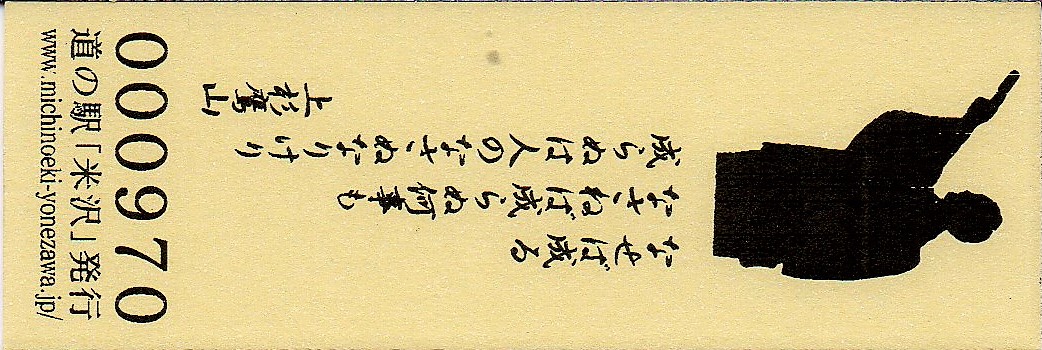 なせば成る
なさねば成らぬ何事も
成らぬは人のなさぬなりけり
上杉鷹山
000970
道の駅「米沢」発行
www.michinoeki-yonezawa.jp/